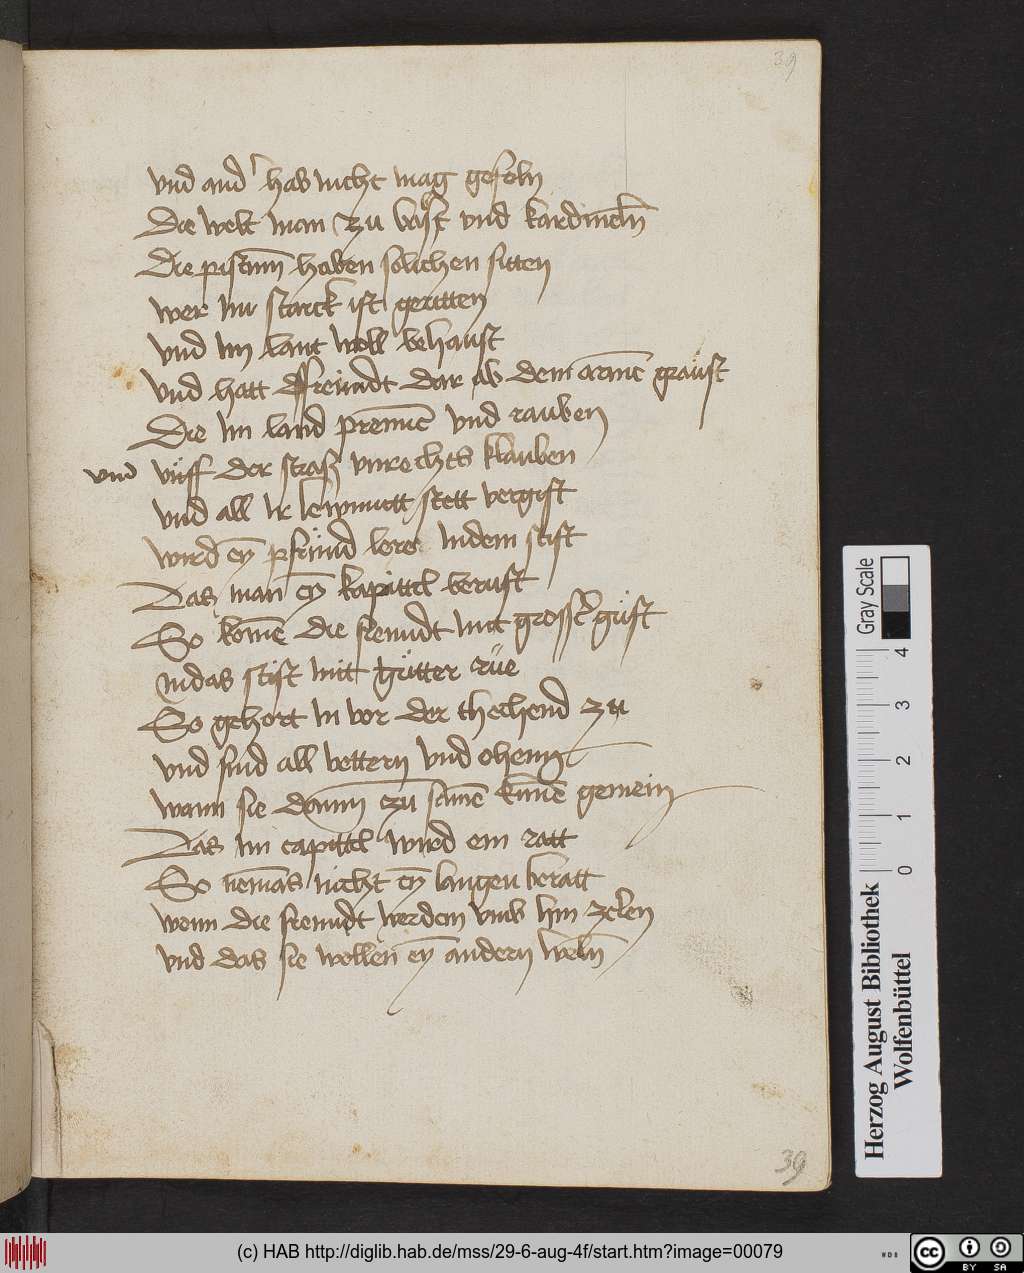 39
vnd and' hab nicht mag gefeln
Die welt man zu babst vnd kardineln
Die pistum haben solichen sitten
wer im starck ist geritten
vnd im lant woll behaust
vnd hatt ffreündt dar ab dem arme graust
Die im land prenne vnd rauben
vnd vff der straß vnrechts klauben
vnd all ir lewmutt stett vergift
wird ey pfründ lere Indem stift
Das man ey kapittel beruft
So kome die freundt mit grosser güft
Indas stift mitt gutter rüe
So gehort In vor der thechend zu
vnd sind all vettern vnd ohenn
wann sie dann zu same kume gemein
Das im capittel wird ein ratt
So nemas nicht ey langen beratt
wenn die freundt werdem vmb hin zelen
vnd das sie wollen ey andern weln
39
Gray Scale
4
3
2
1
0
Herzog August Bibliothek
Wolfenbüttel
(c) HAB http://diglib.hab.de/mss/29-6-aug-4f/start.htm?image=00079
WDB
cc
BY SA